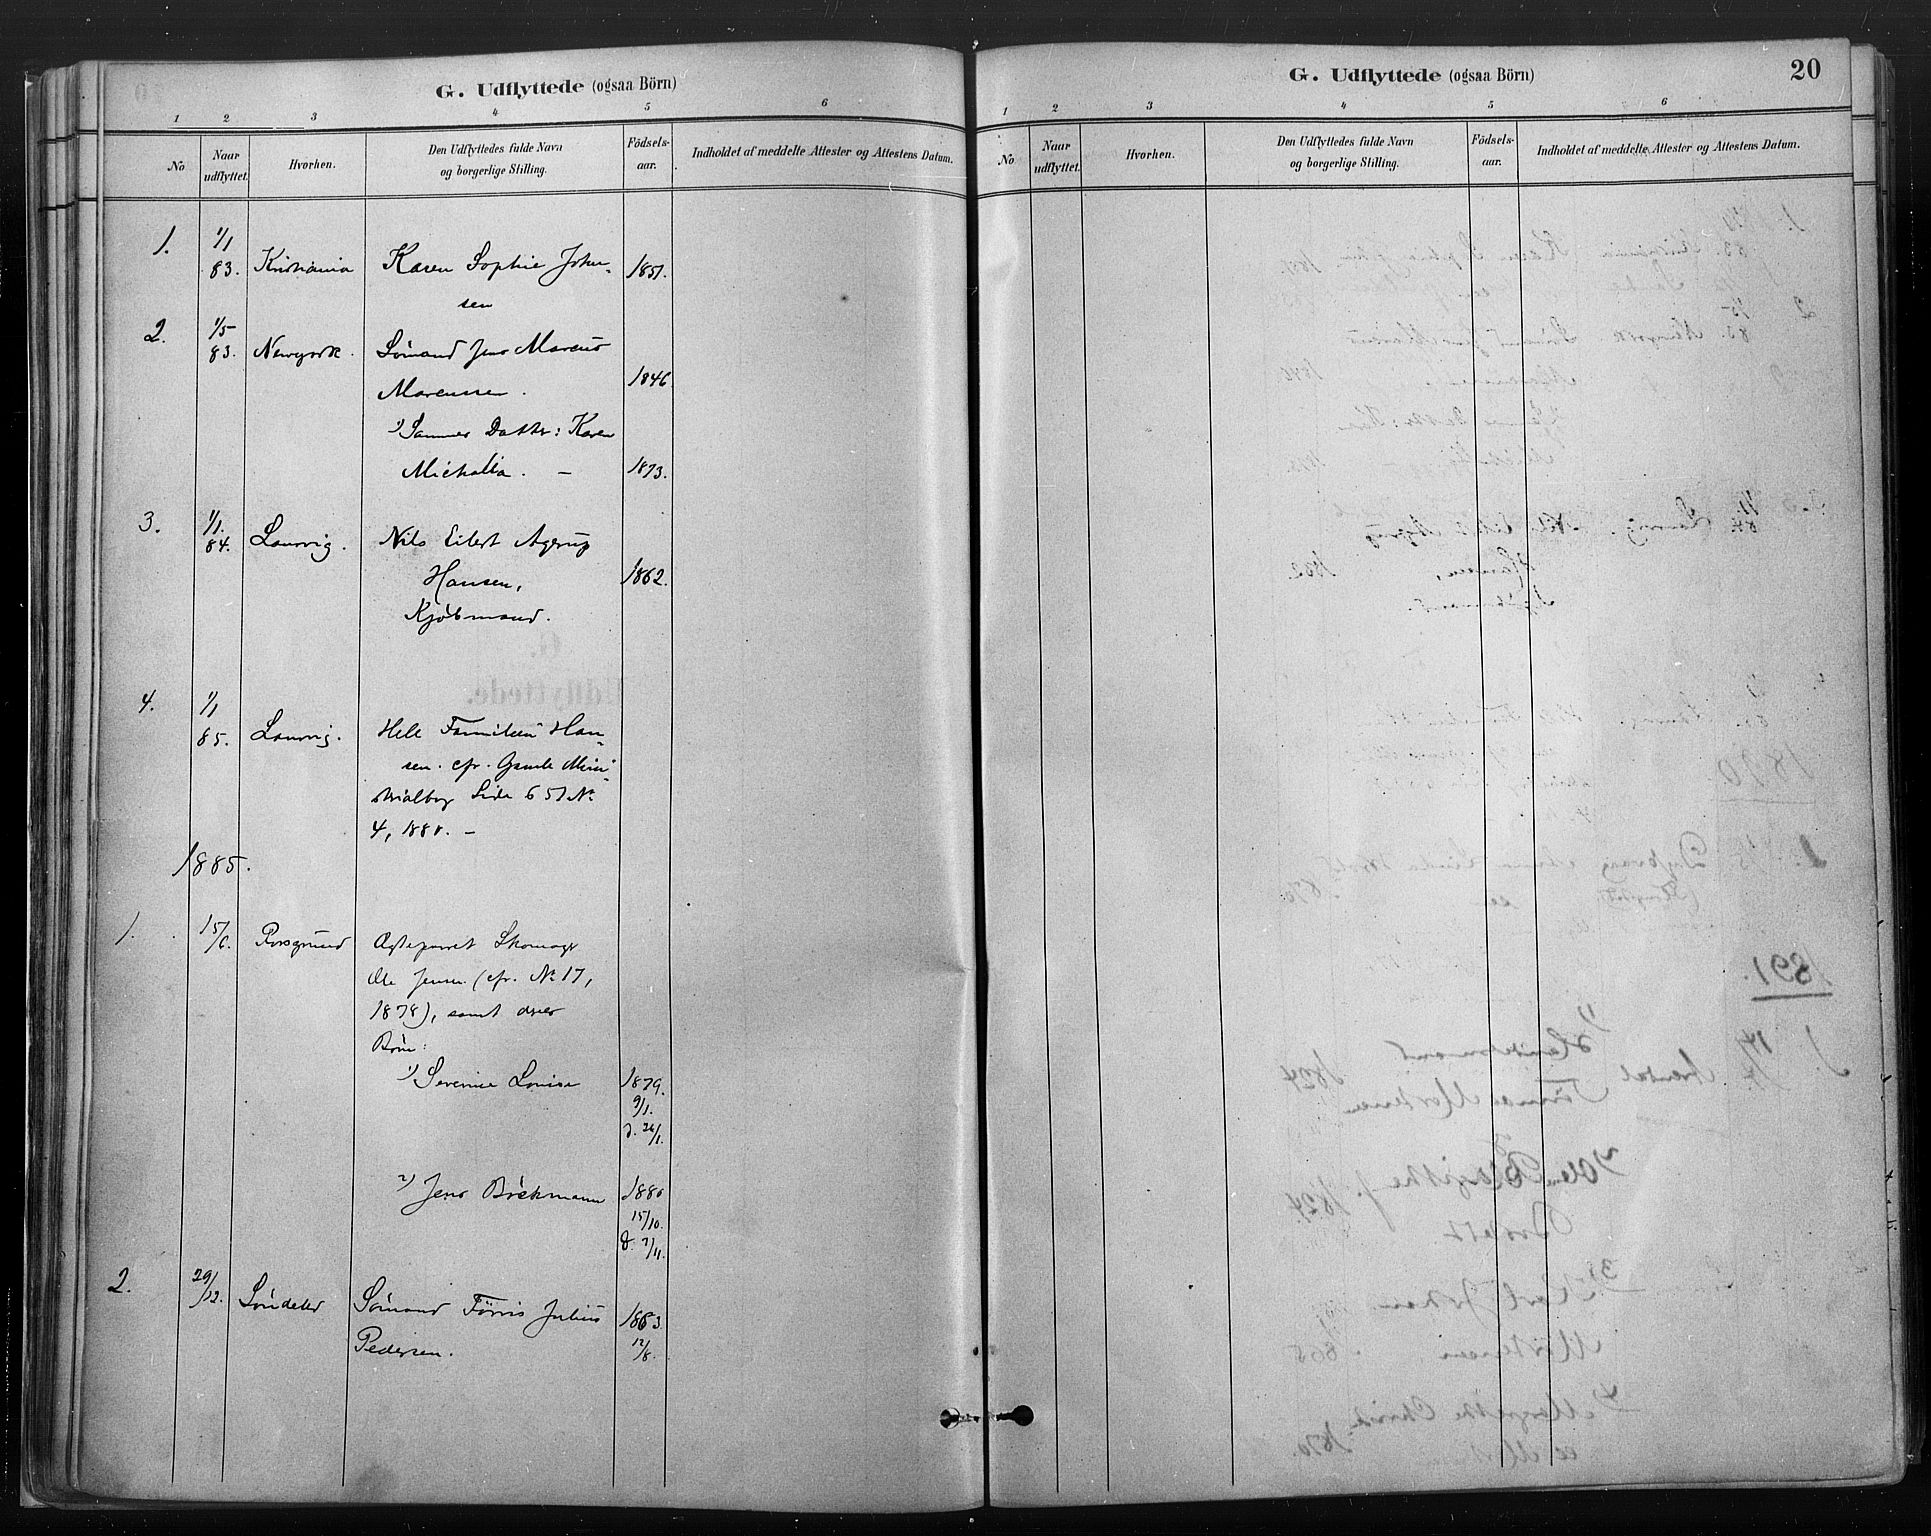 G. Udflyttede (ogsaa Börn)
1 2 3 4 5 6
No
Naar udflyttet.
Hvorhen.
Den Udflyttedes fulde Navn og borgerlige Stilling.
Födsels-aar.
Indholdet af meddelte Attester og Attestens Datum.
1. 1/1 83. Kristiania Karen Sophie John- 1851.
sen
2. 1/5 83. Newyork. Sömand Jens Marcus
Marcussen. 1846
1) Sammes Datter: Karen
Michalia. – 1873.
3. 1/1. 84. Laurvig. Nils Eilert Agerup
Hansen, 1862.
Kjøbmand.
4. 1/1 85. Laurvig. Hele Familien Han-
sen. cfr. Gamle Mini-
strialbog Side 651 No
4, 1880. –
1885.
1. 15/6. Porsgrund Ægteparret Skomager
Ole Jensen (cfr. No 17,
1878), samt deres
Börn:
1) Severine Lovise 1879.
9/1.
d. 26/1.
2) Jens Böckmann 1880
15/10.
d. 7/11.
2. 29/12. Söndeled Sömand Förris Julius 1863
Pedersen. 12/8.
G. Udflyttede (ogsaa Börn) 20
1 2 3 4 5 6
No
Naar udflyttet.
Hvorhen.
Den Udflyttedes fulde Navn og borgerlige Stilling.
Födsels-aar.
Indholdet af meddelte Attester og Attestens Datum.